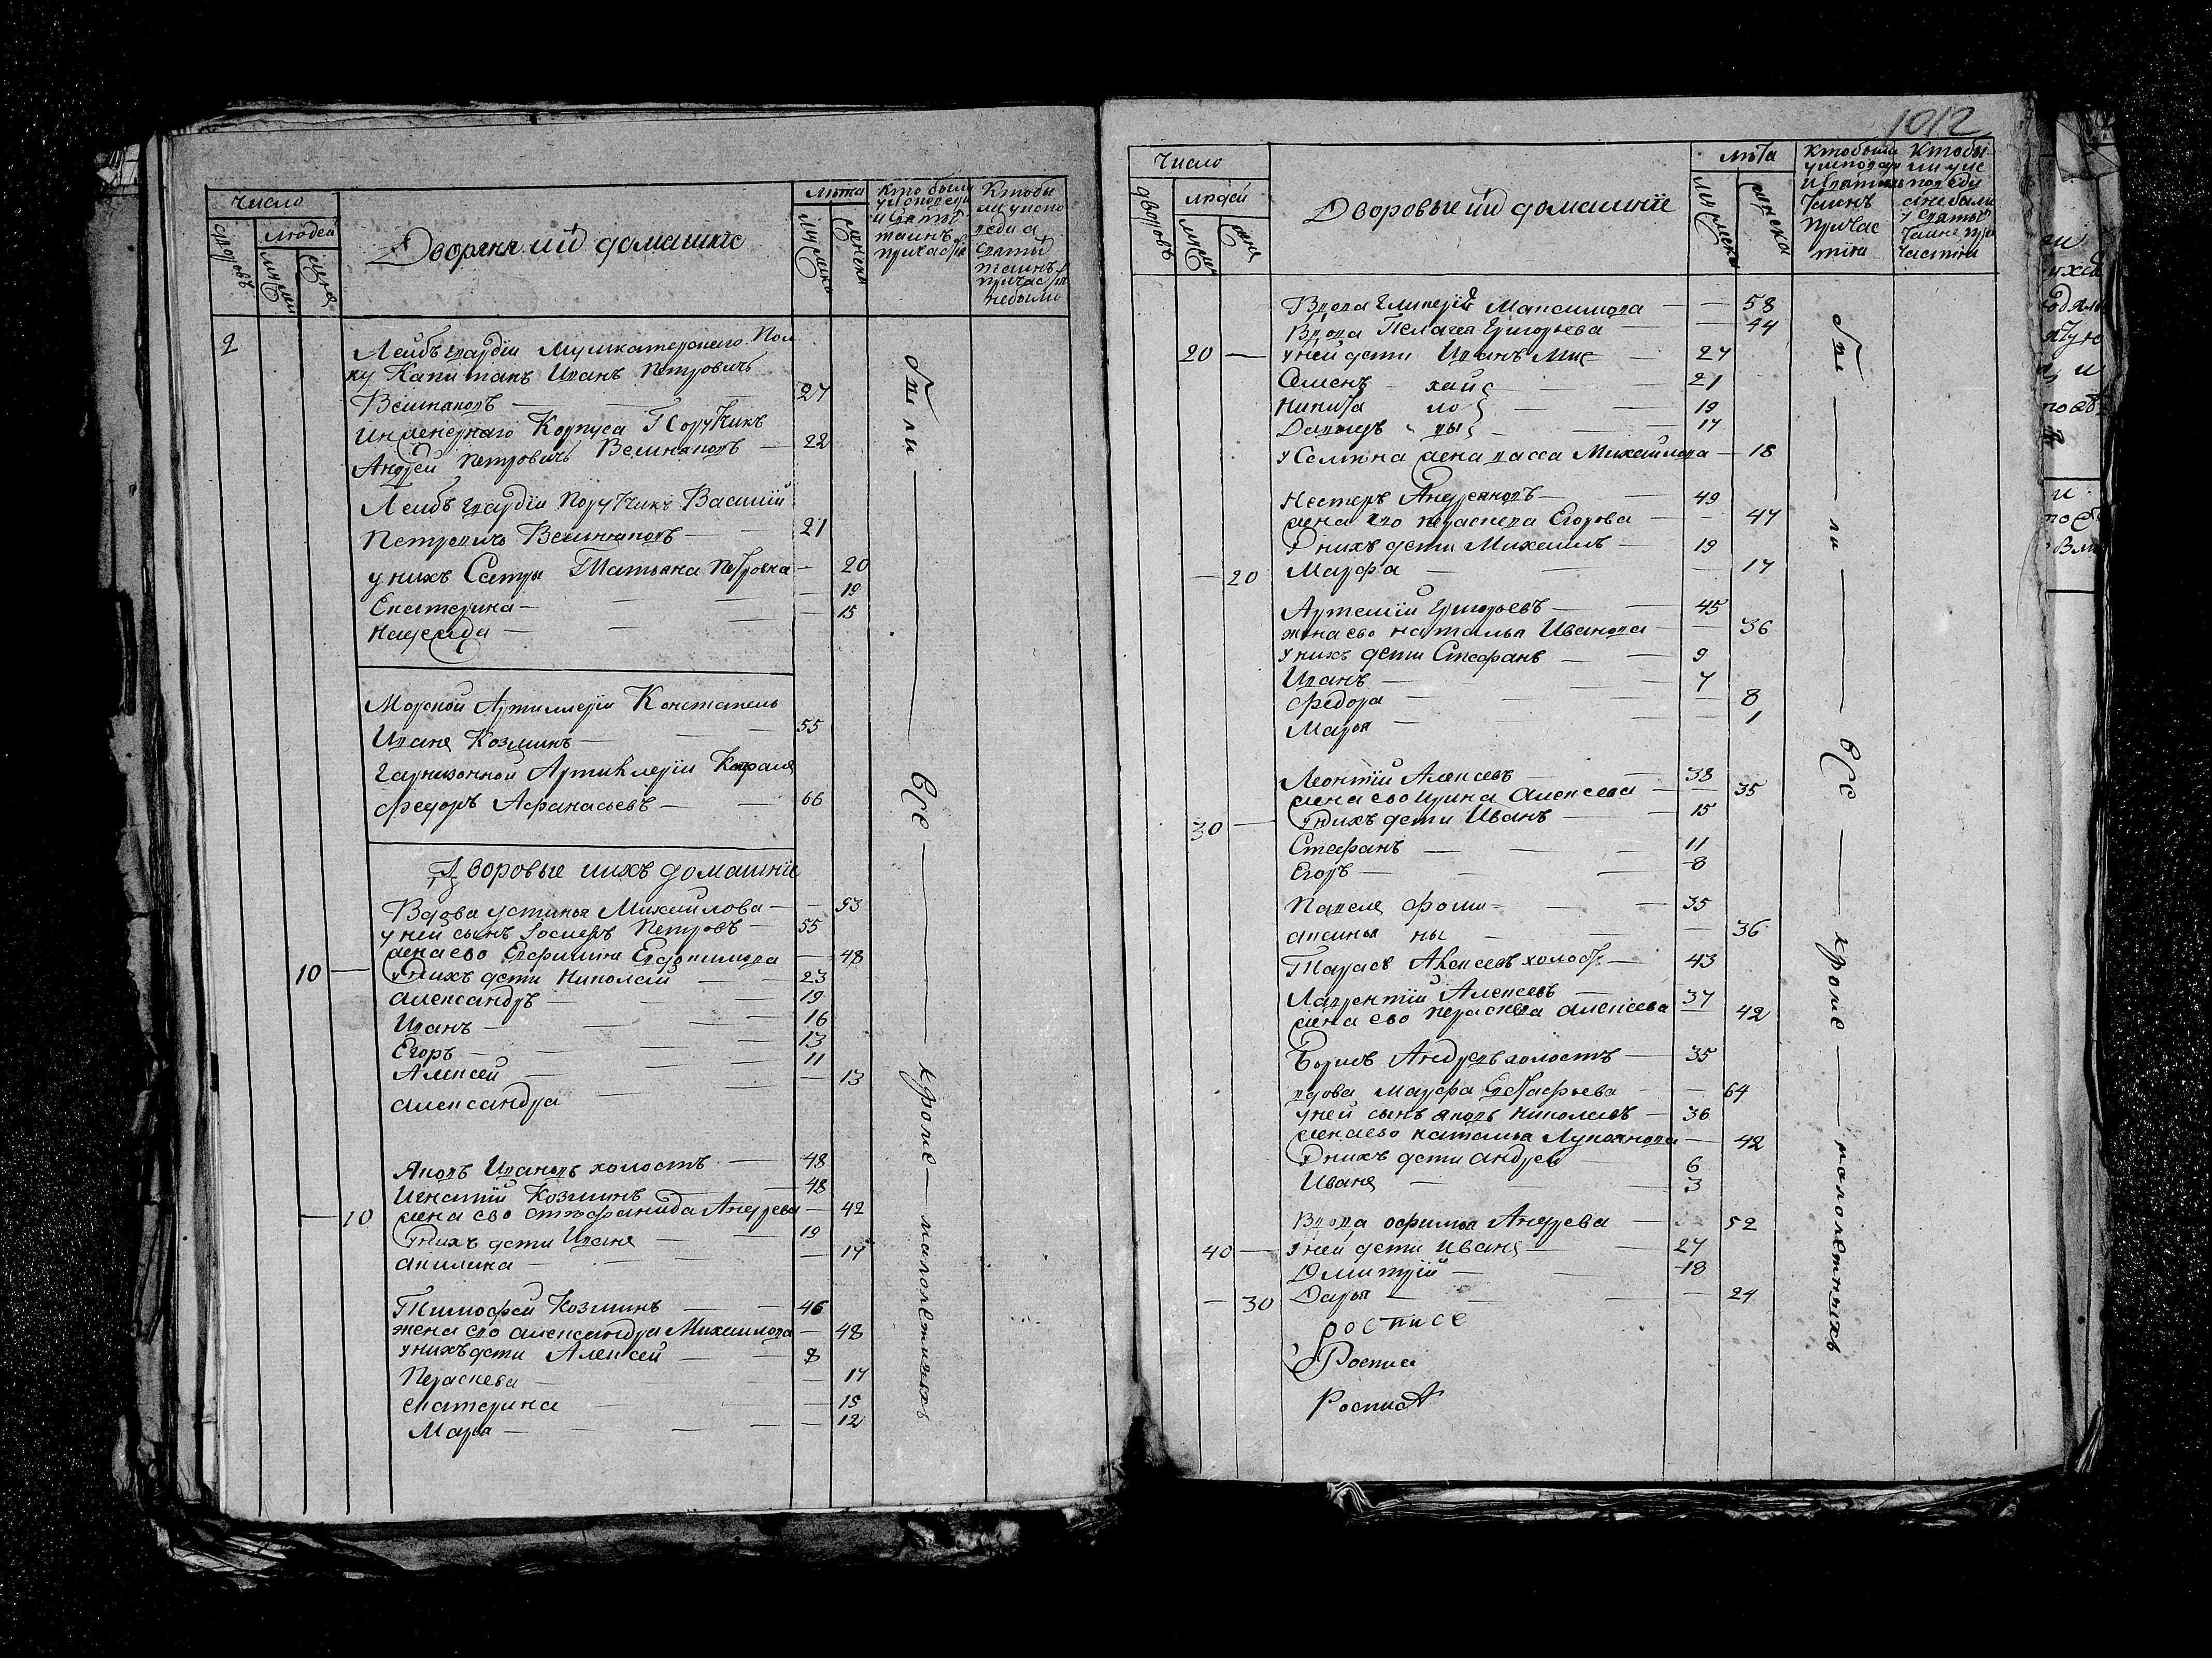 Число
Лѣта
Кто были
у исповеди
и святыхъ
таинъ
причас
Кто бы
ли у испо
веди а
святыхъ
таинъ
причас
не были
дворовъ
людей
мужеска
женска
Дворяня и ихъ домашніе
2
Лейбъ гвардіи Мушкатерскаго Пол
ку Капитанъ Иванъ Петровичъ
Вешняковъ — 27
Инженернаго Корпуса Порутчикъ
Андрей Петровичъ Вешняковъ — 22
Лейбъ гвардіи Порутчикъ Василій
Петровичъ Вешняковъ — 21
у нихъ Сестры Татьяна Петровна — 20
Екатерина — 19
Надежда — 15
Морской Артиллеріи Констапель
Иванъ Козминъ — 55
Гарнизонной Артиллеріи Капралъ
Федоръ Афанасьевъ — 66
Дворовые и ихъ домашніе
Вдова устинья Михайлова — 93
у ней сынъ Петровъ — 55
жена ево Ефимия — 48
10 — у нихъ дети Николай — 23
александръ — 19
Иванъ — 16
Егоръ — 13
Алексей — 11
александра — 13
Яковъ Ивановъ холостъ — 48
Игнатій Козминъ — 48
— 10 жена ево стефанида Андреева — 42
у нихъ дети Иванъ — 19
акилина — 17
Тимофей Козминъ — 46
жена ево александра Михайлова — 48
у нихъ дети Алексей — 8
Пераскева — 17
екатерина — 15
Марья — 12
были — все — кроме — малолетныхъ
1012
Число
дворовъ
людей
Дворовые и ихъ домашніе
лѣта
мужска
женска
Кто были
у исповеди
и святыхъ
таинъ
причас
тіи
Кто бы
ли у ис
поведи
а не были
у святыхъ
таинъ при
частіи
Вдова Гликерія Максимова — 58
Вдова Пелагея Григорьева — 44
20 — у ней дети Иванъ Ми= — 27
Семенъ хай — 21
Никита ло — 19
Давыдъ вы — 17
у Семена жена васса Михайлова — 18
Нестеръ Андреяновъ — 49
жена ево пераскева Егорова — 47
у нихъ дети Михаилъ — 19
— 20 Марфа — 17
Артемій Григорьевъ — 45
жена ево наталья Иванова — 36
у нихъ дети Стефанъ — 9
Иванъ — 7
Федора — 8
Марья — 1
Леонтій Алексевъ — 38
жена ево Ирина Алексева — 35
30 — у нихъ дети Иванъ — 15
Стефанъ — 11
Егоръ — 8
Павелъ фоми= — 35
аксинья ны — 36
Тарасъ Алексевъ холостъ — 43
Лаврентій Алексевъ — 37
жена ево пераскева алексева — 42
Борисъ Андревъ холостъ — 35
вдова Марфа Евстафьева — 64
у ней сынъ яковъ николаевъ — 36
жена ево наталья Лукоянова — 42
у нихъ дети андрей — 6
Иванъ — 3
Вдова офимья Андрева — 52
40 — у ней дети Иванъ — 27
Дмитрій — 18
— 30 Дарья — 24
росписе
Росписи
Роспись
бы — ли — все — кроме — малолетныхъ